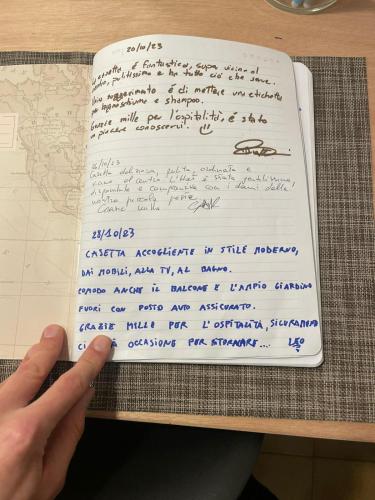 20/10/23
L'appartamento è fantastico, super vicino al
centro, pulitissimo e ha tutto ciò che serve.
Unico suggerimento è di mettere una etichetta
per bagnoschiuma e shampoo.
Grazie mille per l'ospitalità, è stato
un piacere conoscervi!
26/10/23
Casetta deliziosa, pulita, ordinata e
vicino al centro. L'host è stata gentilissima,
disponibile e comprensiva con i danni della
nostra piccola peste.
Grazie mille
28/10/23
CASETTA ACCOGLIENTE IN STILE MODERNO,
DAI MOBILI, ALLA TV, AL BAGNO.
COMODO ANCHE IL BALCONE E L'AMPIO GIARDINO
FUORI CON POSTO AUTO ASSICURATO.
GRAZIE MILLE PER L'OSPITALITÀ, SICURAMENTE
CI OCCASIONE PER STORNARE... LEO